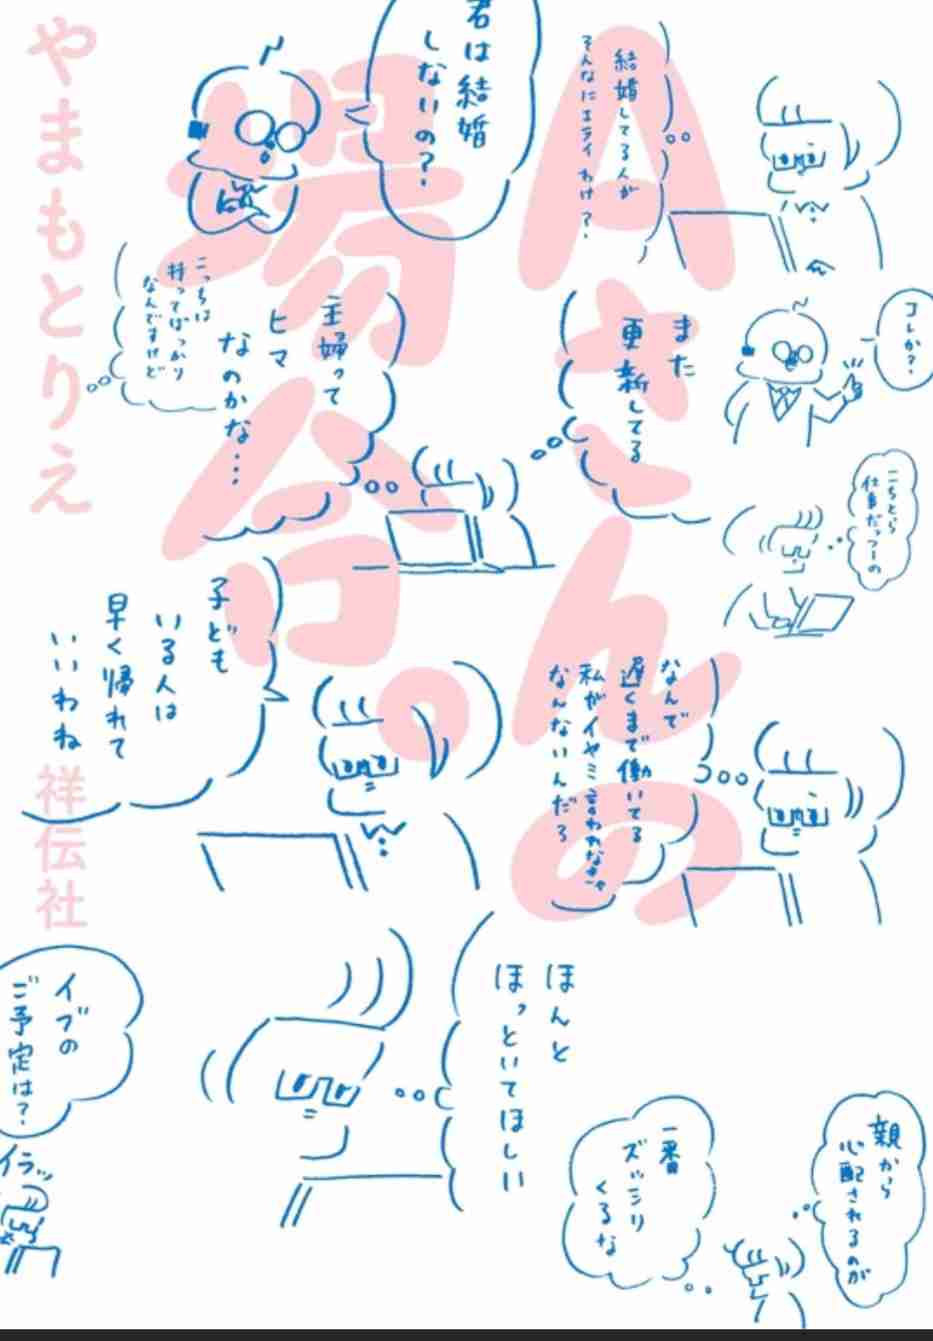 Aさんの
場合。
やまもとりえ
祥伝社
結婚してる人が
そんなにエライわけ？
君は結婚
しないの？
コレか？
また
更新してる
主婦って
ヒマ
なのかな…
こっちは
持ってばっかり
なんですけど
こちとら
仕事だっつーの
なんで
遅くまで働いてる
私がイヤミ言われなきゃ
なんないんだろ
子ども
いる人は
早く帰れて
いいわね
ほんと
ほっといてほしい
イブの
ご予定は？
イラッ
親から
心配されるのが
一番
ズッシリ
くるな